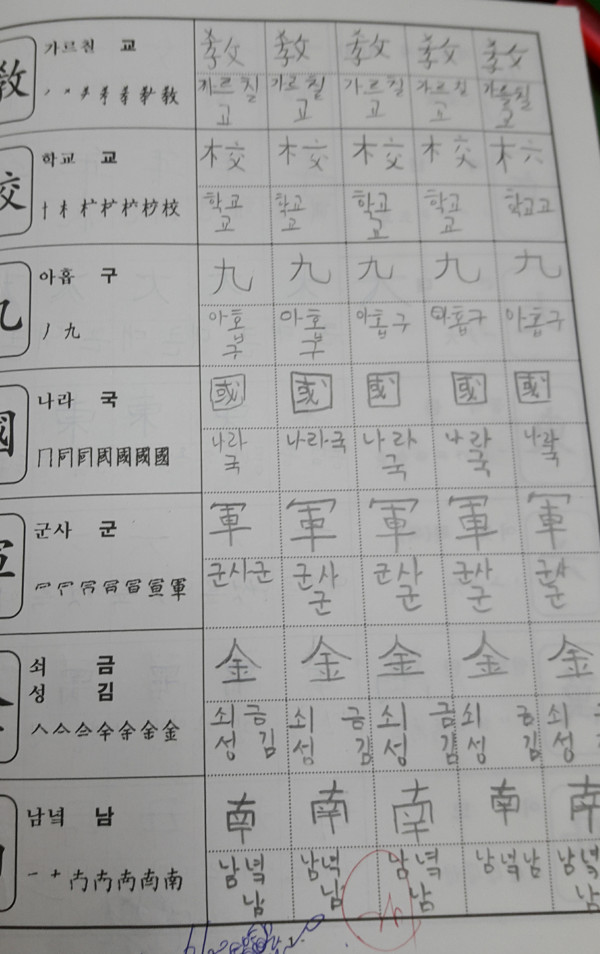 敎 가르칠 교 敎 敎 敎 敎 敎
가르칠 가르칠 가르칠 가르칠 가르칠
교 교 교 교 교
校 학교 교 校 校 校 校
학교 학교 학교 학교 학교교
교 교 교 교
九 아홉 구 九 九 九 九 九
丿 九 아홉 아홉 아홉구 아홉구 아홉구
구 구
國 나라 국 國 國 國 國 國
冂 同 國 國 國 나라 나라국 나라 나라 나라
국 국 국 국
軍 군사 군 軍 軍 軍 軍 軍
軍 군사군 군사 군사 군사 군사
군 군 군 군
쇠 금 金 金 金 金 金
성 김
人 金 쇠 금 쇠 금 쇠 금 쇠 금 쇠
성 김 섬 김 성 김 성 김 성
남녘 남 南 南 南 南 南
一 十 南 남녘 남녘 남녘 남녘남 남녘
남 남 남 남